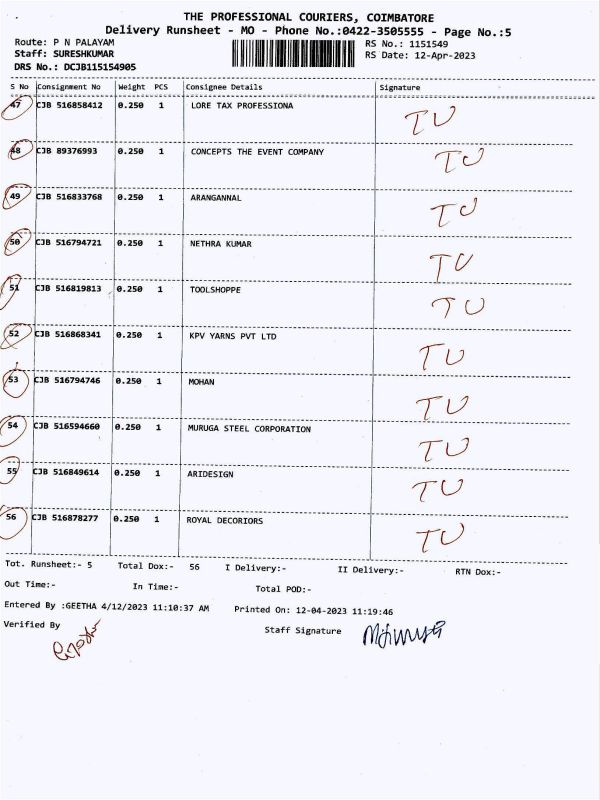 THE PROFESSIONAL COURIERS, COIMBATORE
Delivery Runsheet - MO - Phone No.:0422-3505555 - Page No.:5
Route: P N PALAYAM RS No.: 1151549
Staff: SURESHKUMAR RS Date: 12-Apr-2023
DRS No.: DCJB115154905
S No Consignment No Weight PCS Consignee Details Signature
47 CJB 516858412 0.250 1 LORE TAX PROFESSIONA TU
48 CJB 89376993 0.250 1 CONCEPTS THE EVENT COMPANY TU
49 CJB 516833768 0.250 1 ARANGANNAL TU
50 CJB 516794721 0.250 1 NETHRA KUMAR TU
51 CJB 516819813 0.250 1 TOOLSHOPPE TU
52 CJB 516868341 0.250 1 KPV YARNS PVT LTD TU
53 CJB 516794746 0.250 1 MOHAN TU
54 CJB 516594660 0.250 1 MURUGA STEEL CORPORATION TU
55 CJB 516849614 0.250 1 ARIDESIGN TU
56 CJB 516878277 0.250 1 ROYAL DECORIORS TU
Tot. Runsheet:- 5 Total Dox:- 56 I Delivery:- II Delivery:- RTN Dox:-
Out Time:- In Time:- Total POD:-
Entered By :GEETHA 4/12/2023 11:10:37 AM Printed On: 12-04-2023 11:19:46
Verified By Staff Signature